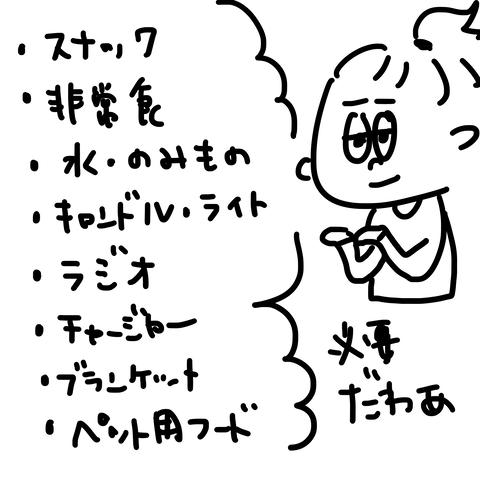 ・スナック
・非常食
・水・のみもの
・キャンドル・ライト
・ラジオ
・チャージャー
・ブランケット
・ペット用フード
必要
だわぁ